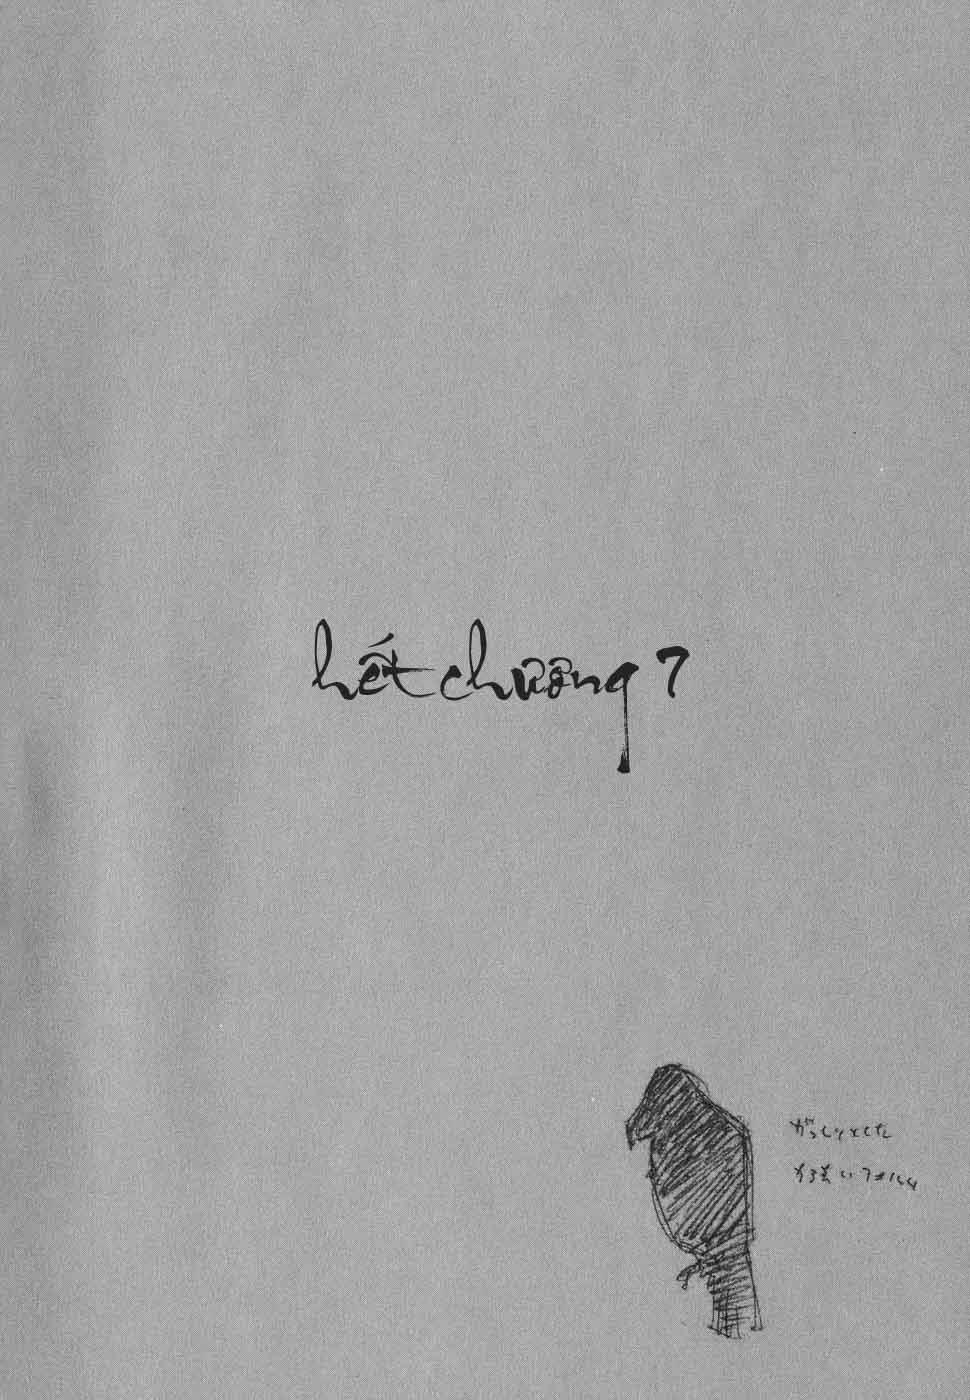 hết chương 7
がっしりとした
力強いフォルム